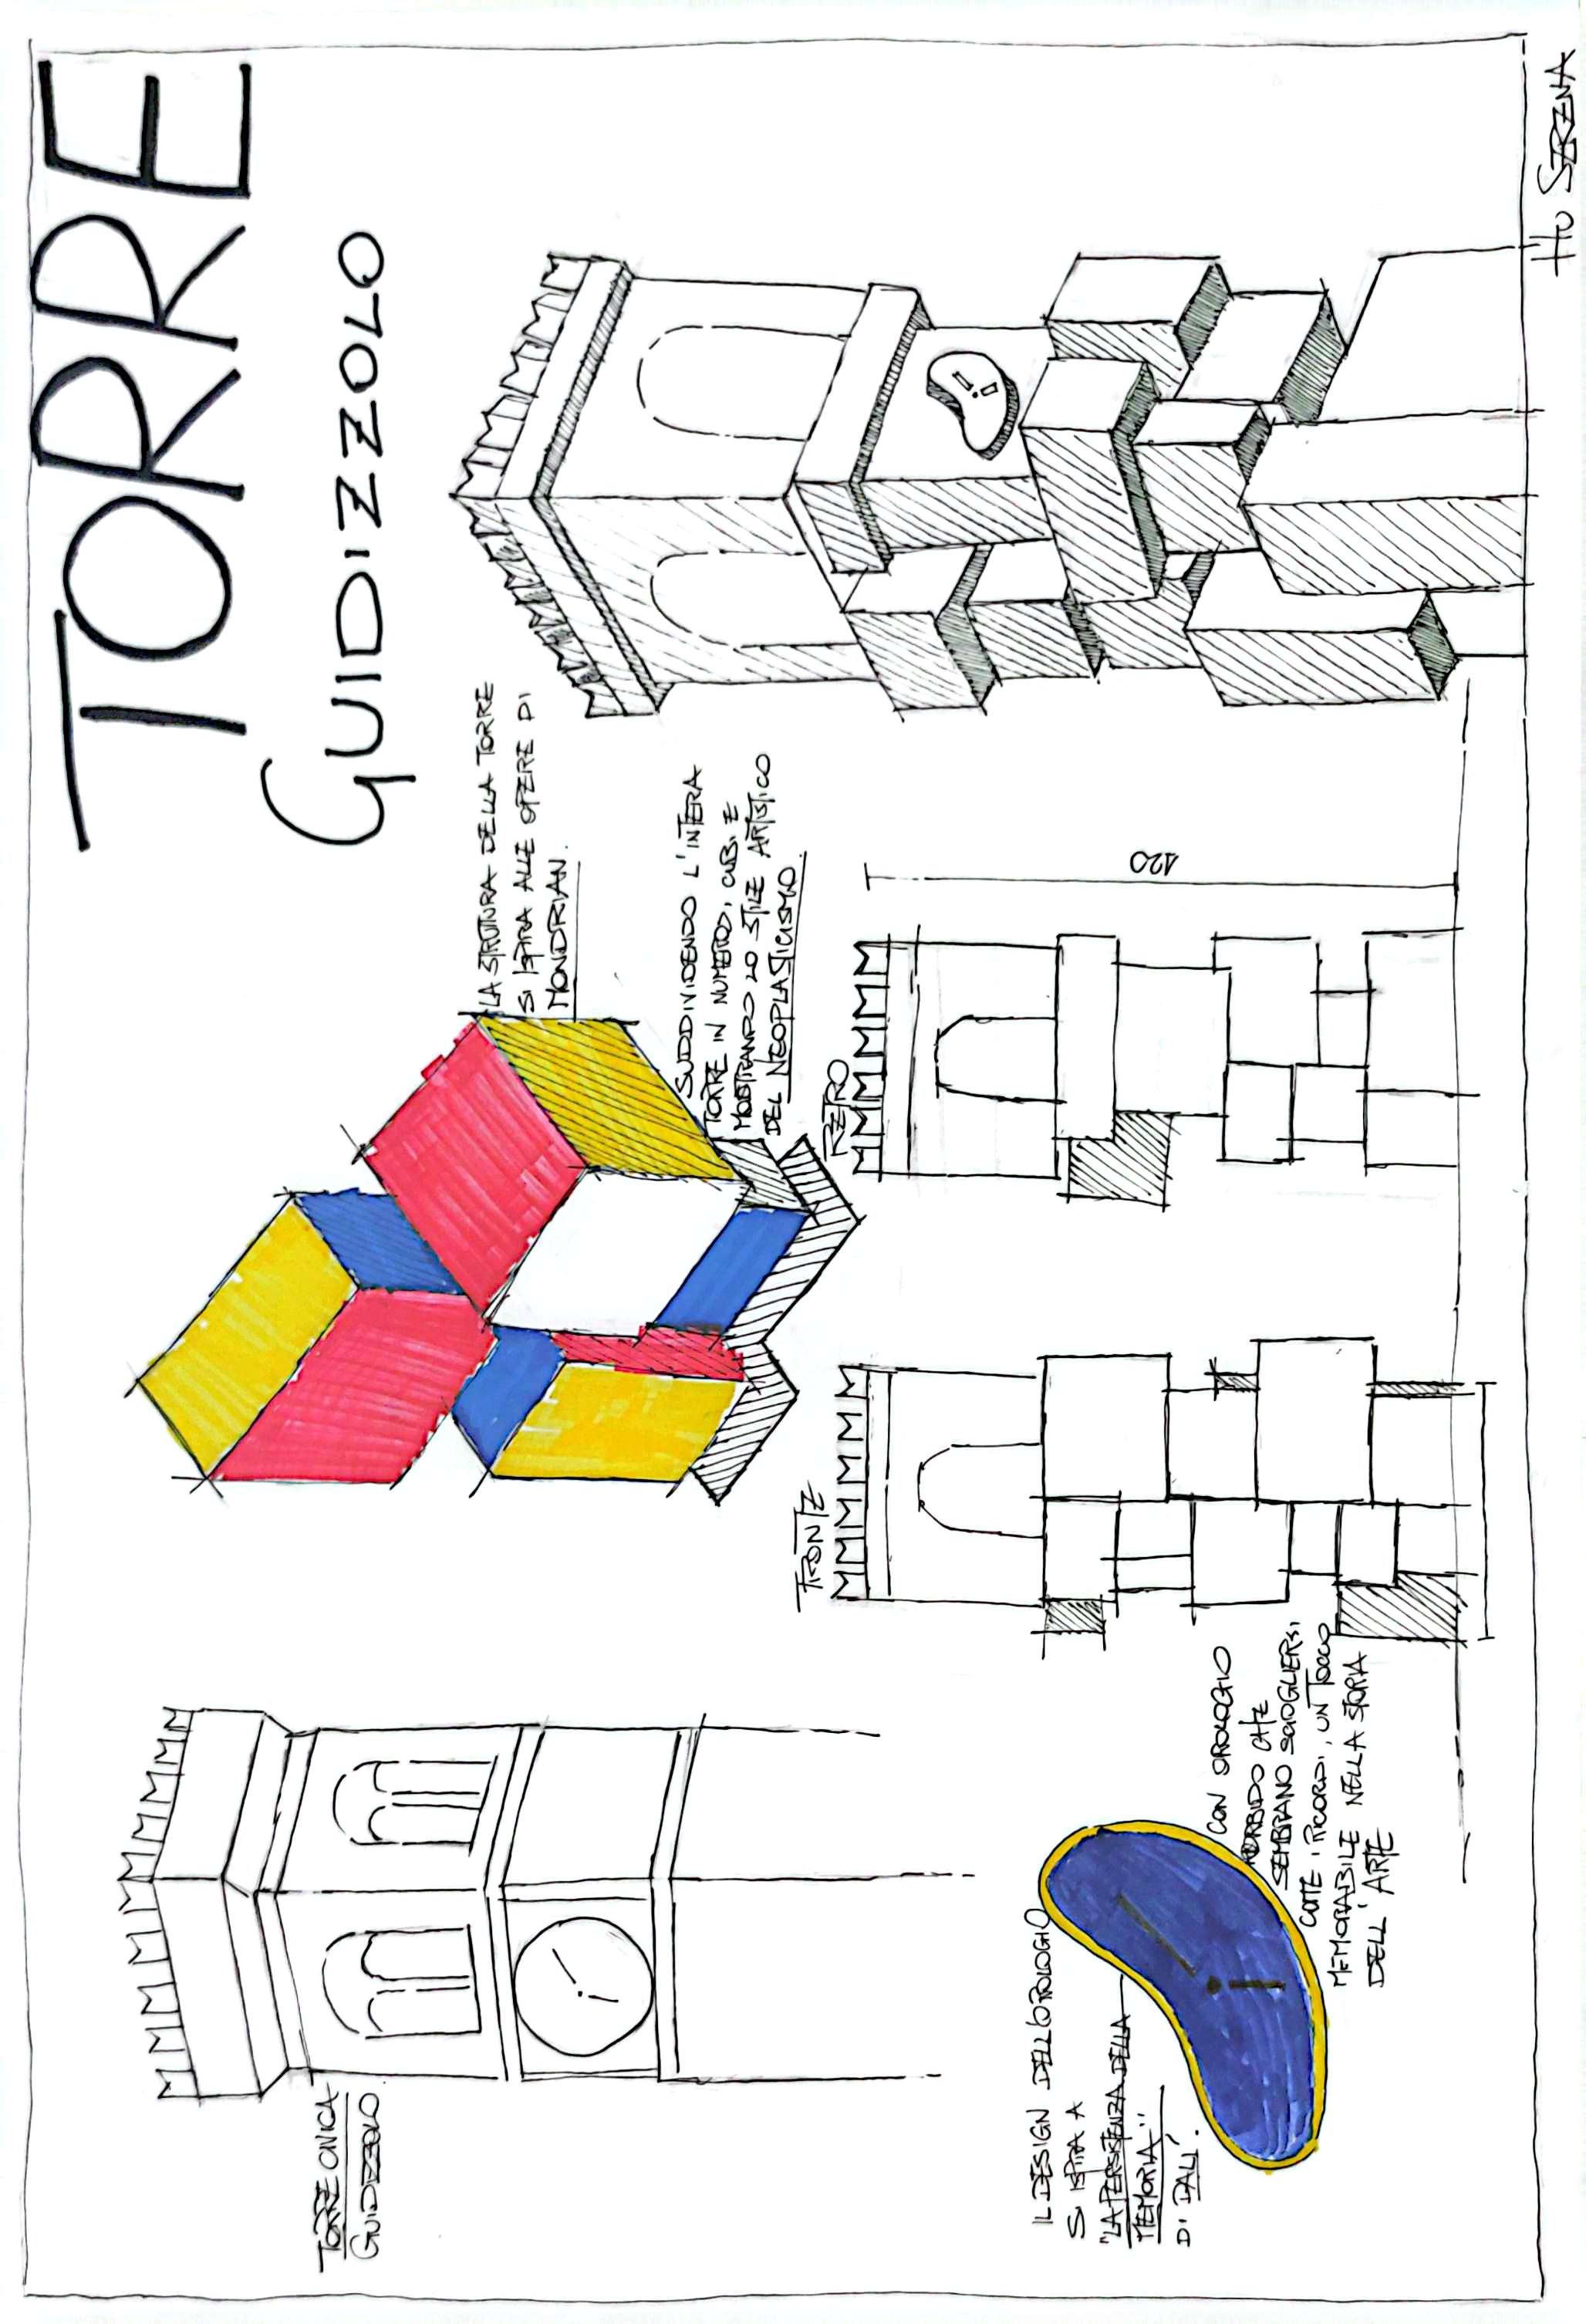 TORRE
GUIDIZZOLO
TORRE CIVICA
GUIDIZZOLO
LA STRUTURA DELLA TORRE
SI ISPIRA ALLE OPERE DI
MONDRIAN.
SUDDIVIDENDO L'INTERA
TORRE IN NUMEROSI CUBI E
MOSTRANDO LO STILE ARTISTICO
DEL NEOPLASTICISMO.
FRONTE
RETRO
120
IL DESIGN DELL'OROLOGIO
SI ISPIRA A
"LA PERSISTENZA DELLA
MEMORIA"
DI DALÍ.
CON OROLOGIO
MORBIDO CHE
SEMBRANO SCIOGLIERSI
COME I RICORDI, UN TOCCO
MEMORABILE NELLA STORIA
DELL'ARTE
HU SERENA